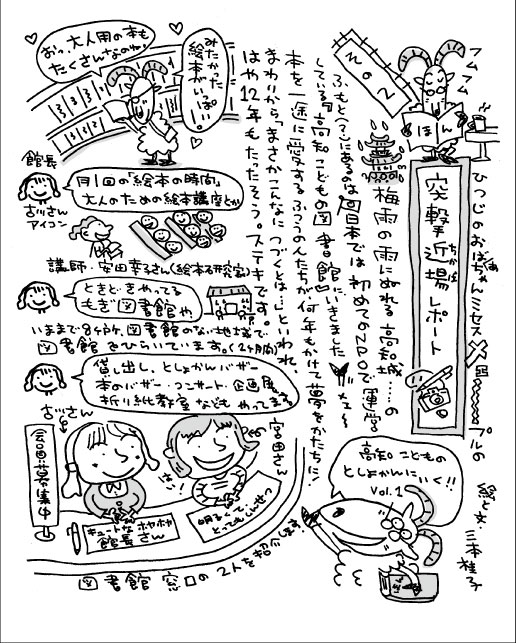 ひつじのおばちゃん
ミセスメ〜〜プルの
突撃近場レポート
ちかば
No2
フムフム
ほん
絵と文 三本桂子
高知こどもの
としょかんにいく!!
Vol.1
ほん
梅雨の雨にぬれる高知城……の
ふもと(?)にあるのは回日本では初めてのNPOで運営
している「高知こどもの図書館」にいきました
メェ〜
本を一途に愛するふつうの人たちが何年もかけて夢をかたちに!
まわりから「まさかこんなにつづくとは…」といわれ、
はや12年もたったそう。ステキです。
みたかった
絵本がいっぱい!
おっ、大人用の本も
たくさんなのね!
館長
古川さん
アイコン
月1回の「絵本の時間」
大人のための絵本講座とか
講師・安田幸子さん(絵本研究家)
ときどきやってる
もぎ図書館や
いままで8ヶ所、図書館のない地域で
図書館をひらいています。(2ヶ月間)
貸し出し、としょかんバザー
本のバザー・コンサート・企画展
折り紙教室なども やってます
古川さん
宮田さん
会員募集中
キュートな ホヤホヤ
館長さん
明るくて
とってもしんせつ
図書館 窓口の 2人を紹介します